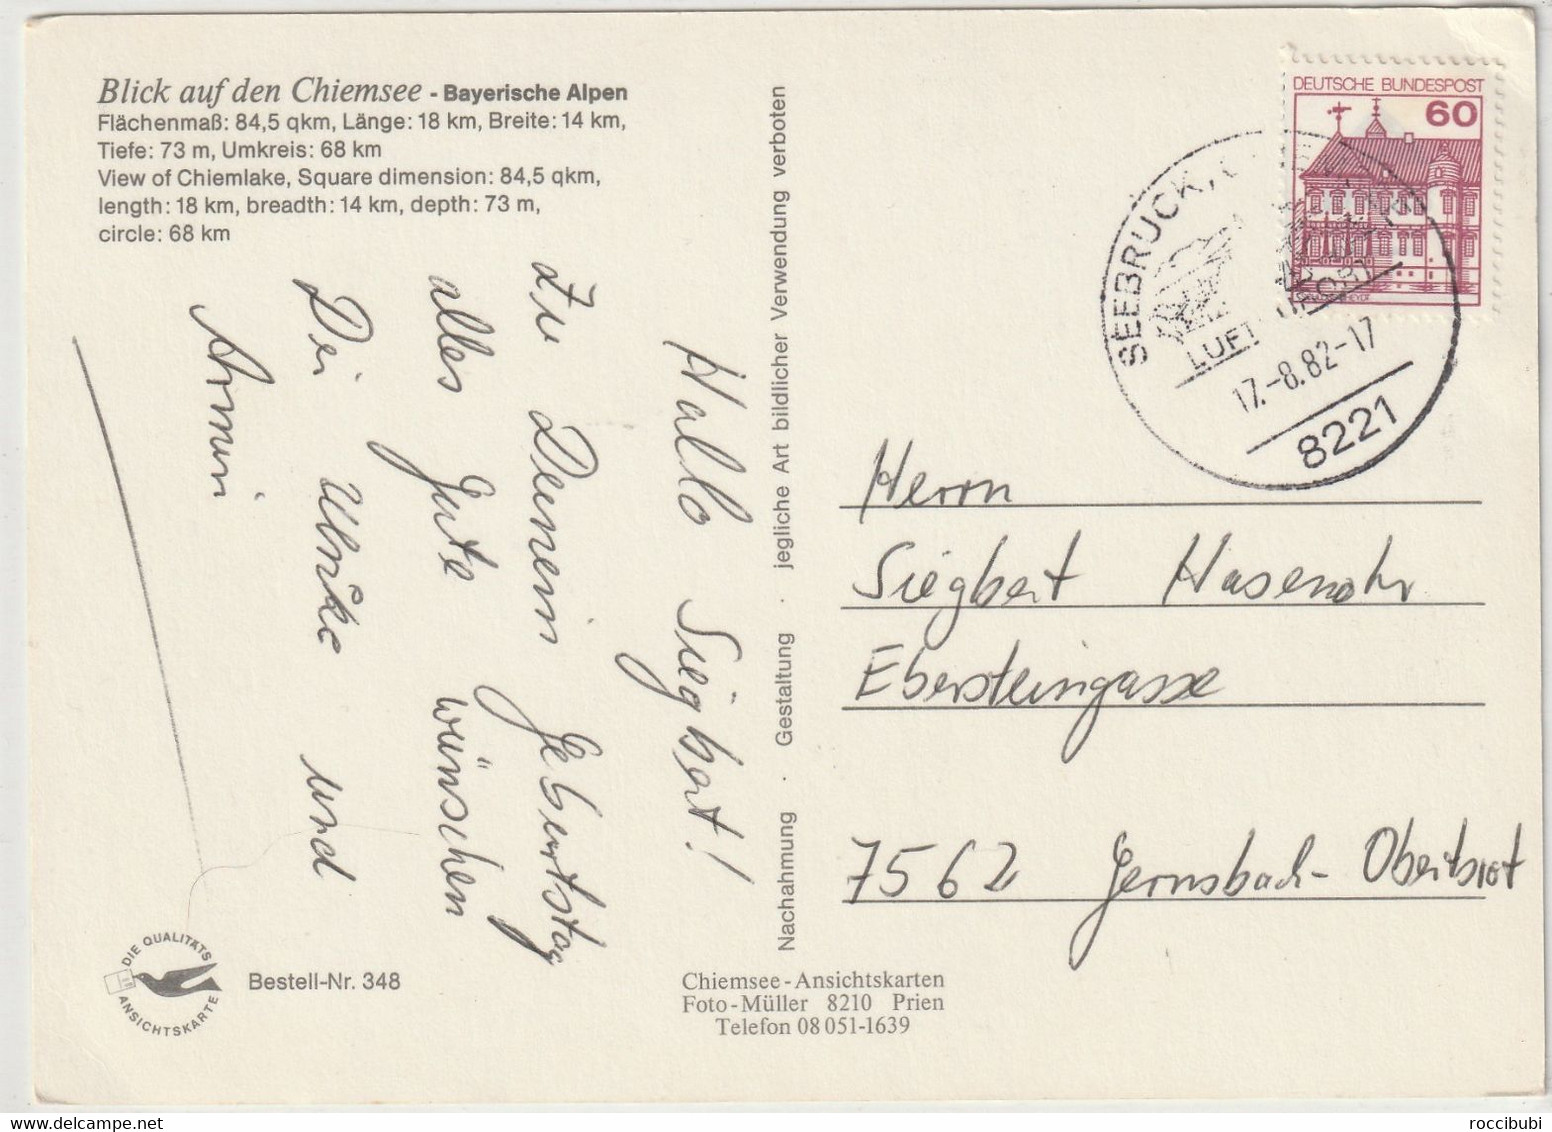 Blick auf den Chiemsee - Bayerische Alpen
Flächenmaß: 84,5 qkm, Länge: 18 km, Breite: 14 km,
Tiefe: 73 m, Umkreis: 68 km
View of Chiemlake, Square dimension: 84,5 qkm,
length: 18 km, breadth: 14 km, depth: 73 m,
circle: 68 km
Hallo Siegbert!
Zu Deinem Geburtstag
alles Gute wünschen
Dir Ulrike und
Armin
Nachahmung · Gestaltung · jegliche Art bildlicher Verwendung verboten
DEUTSCHE BUNDESPOST
60
SEEBRUCK,
LUFT
17.-8.82-17
8221
Herrn
Siegbert Hasenohr
Ebersteingasse
7562 Gernsbach-Obertsrot
DIE QUALITÄTS
ANSICHTSKARTE
Bestell-Nr. 348
Chiemsee-Ansichtskarten
Foto-Müller 8210 Prien
Telefon 08051-1639
roccibubi